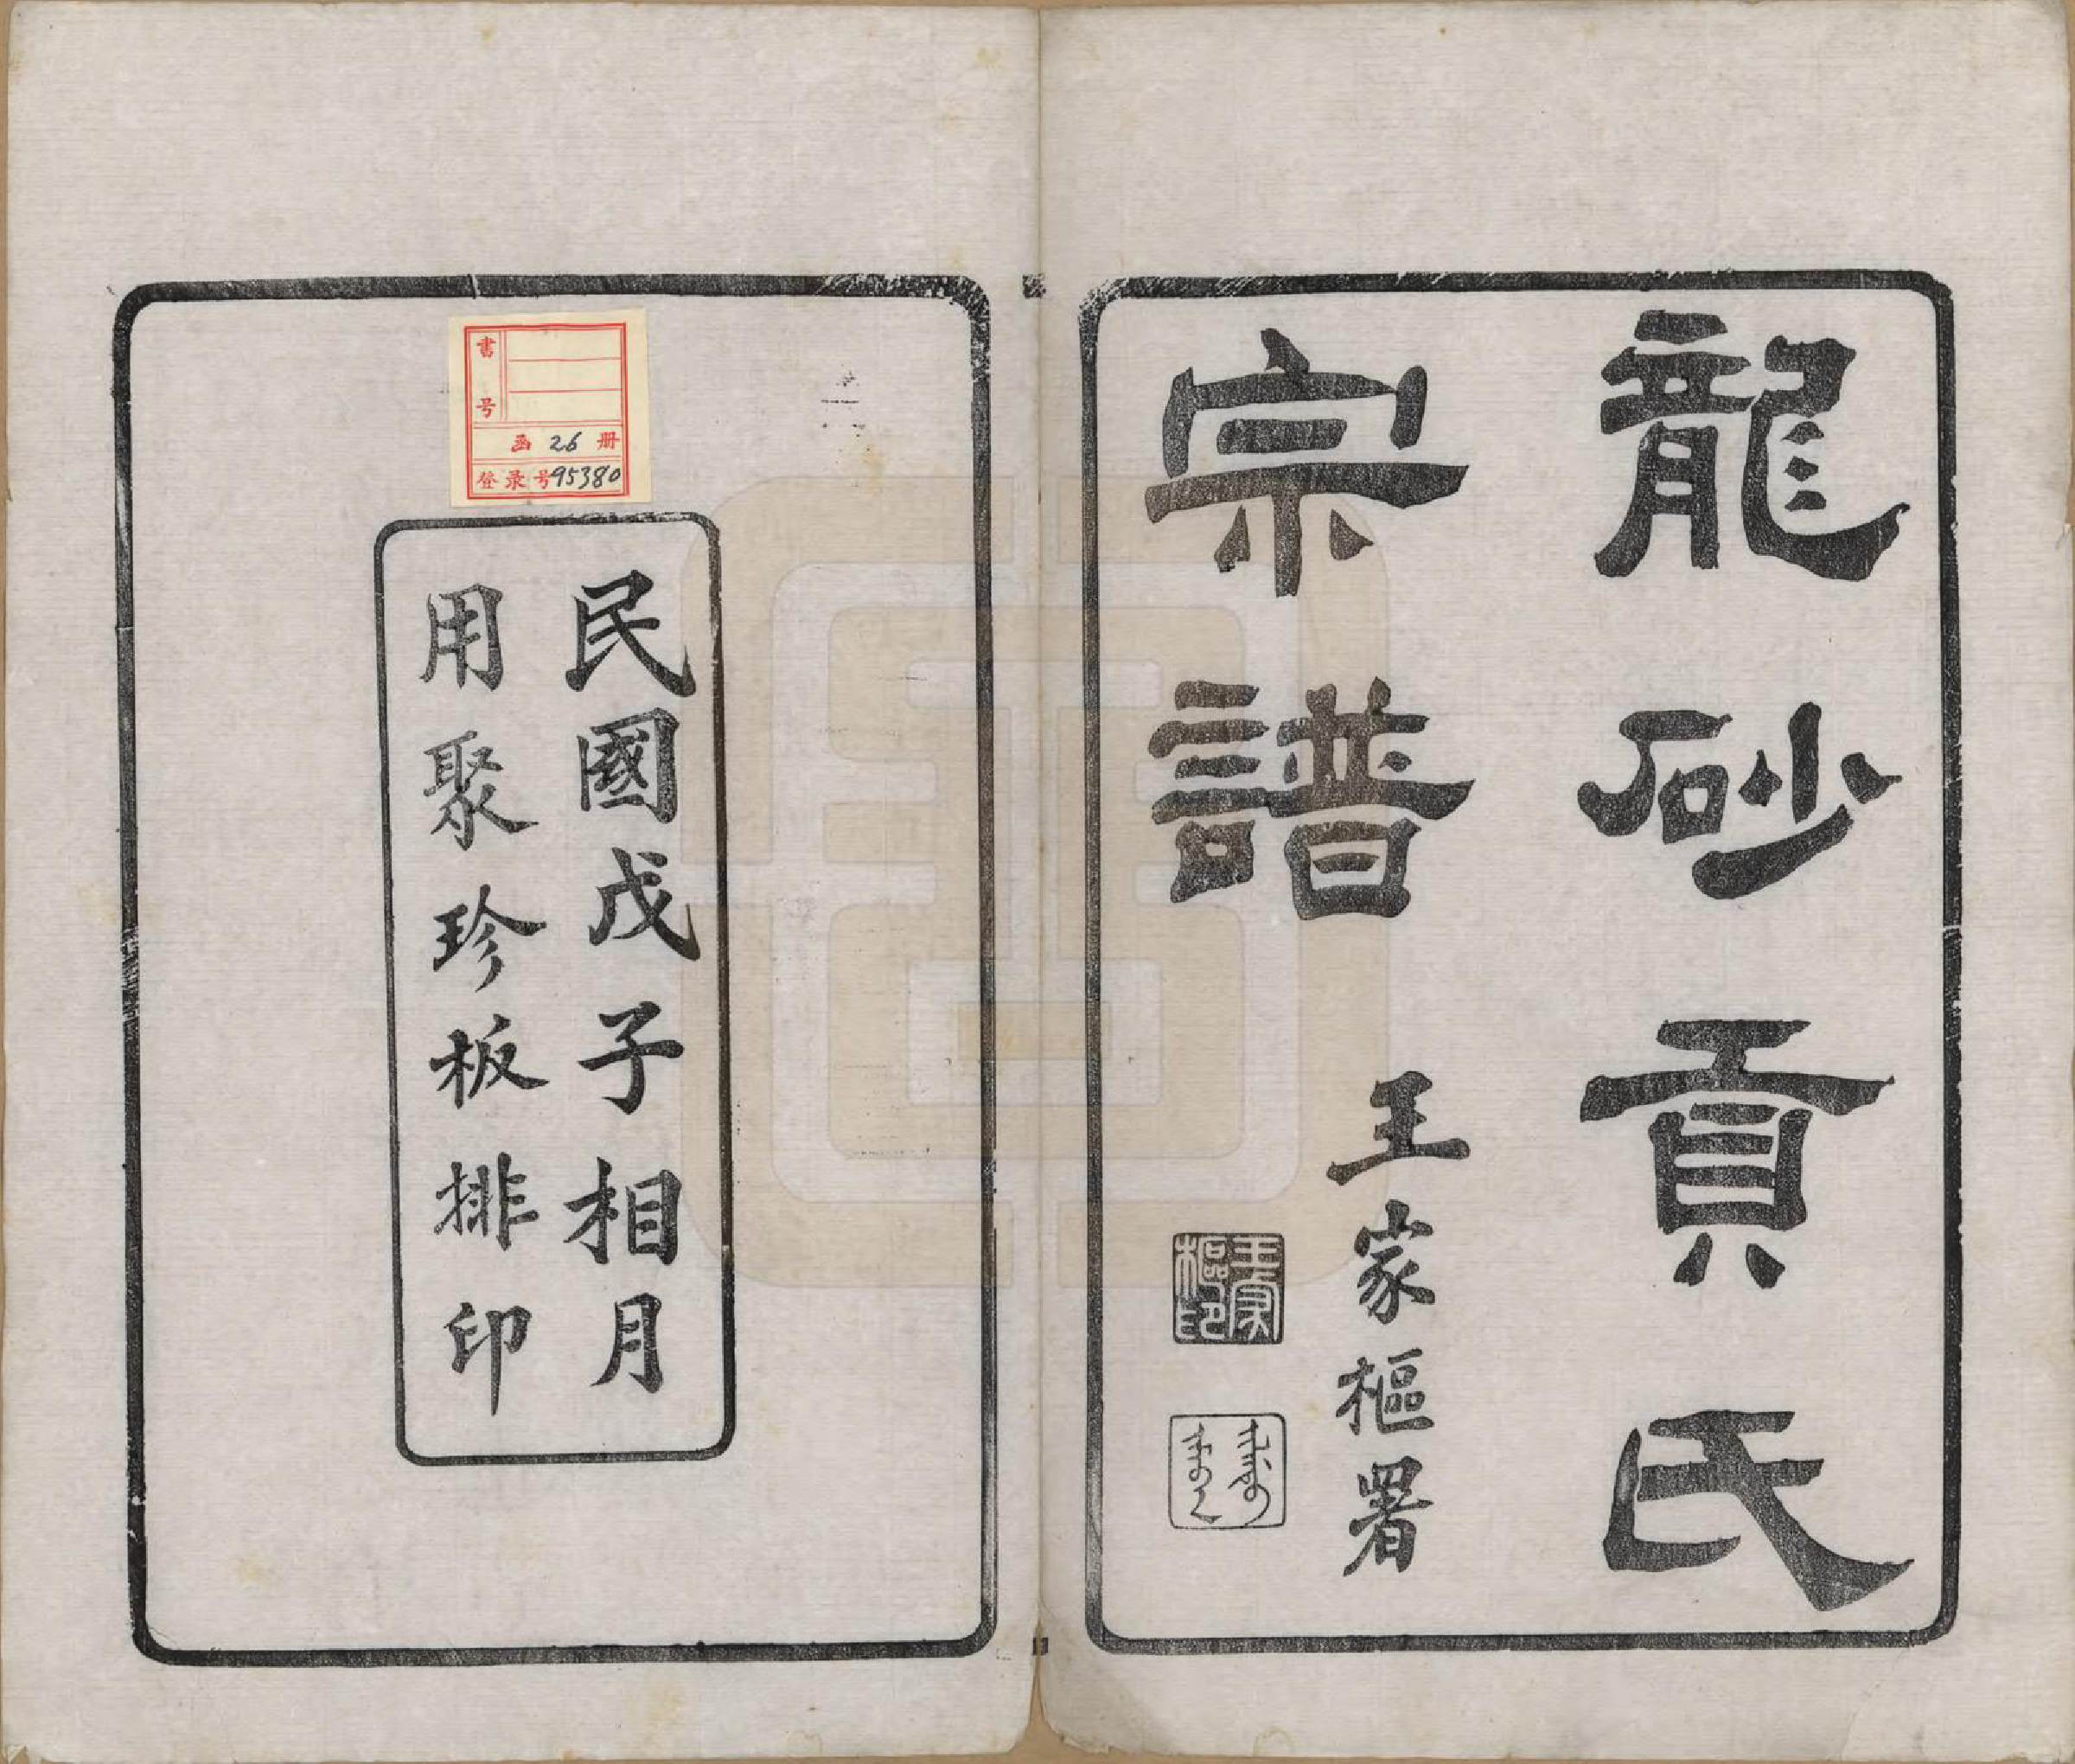 龍砂貢氏
宗譜
王家樞署
王家
樞印
民國戊子相月
用聚珍板排印
書号
函 26 册
登录号 95380